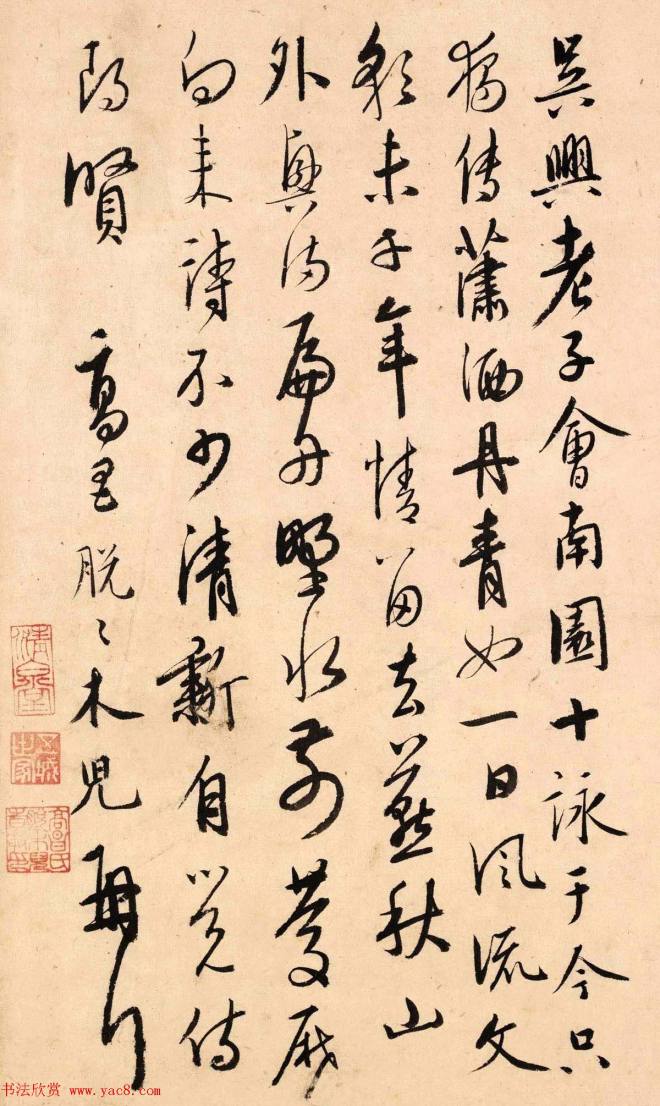 吳興老子會南園十詠于今只
獨傳蕭洒丹青如一日風流文
彩未千年情留去燕秋山
外興滿扁舟野水前慶歷
向来詩不少清新自覺侍
郎賢 高昌脱〻木兒再
书法欣赏 www.yac8.com